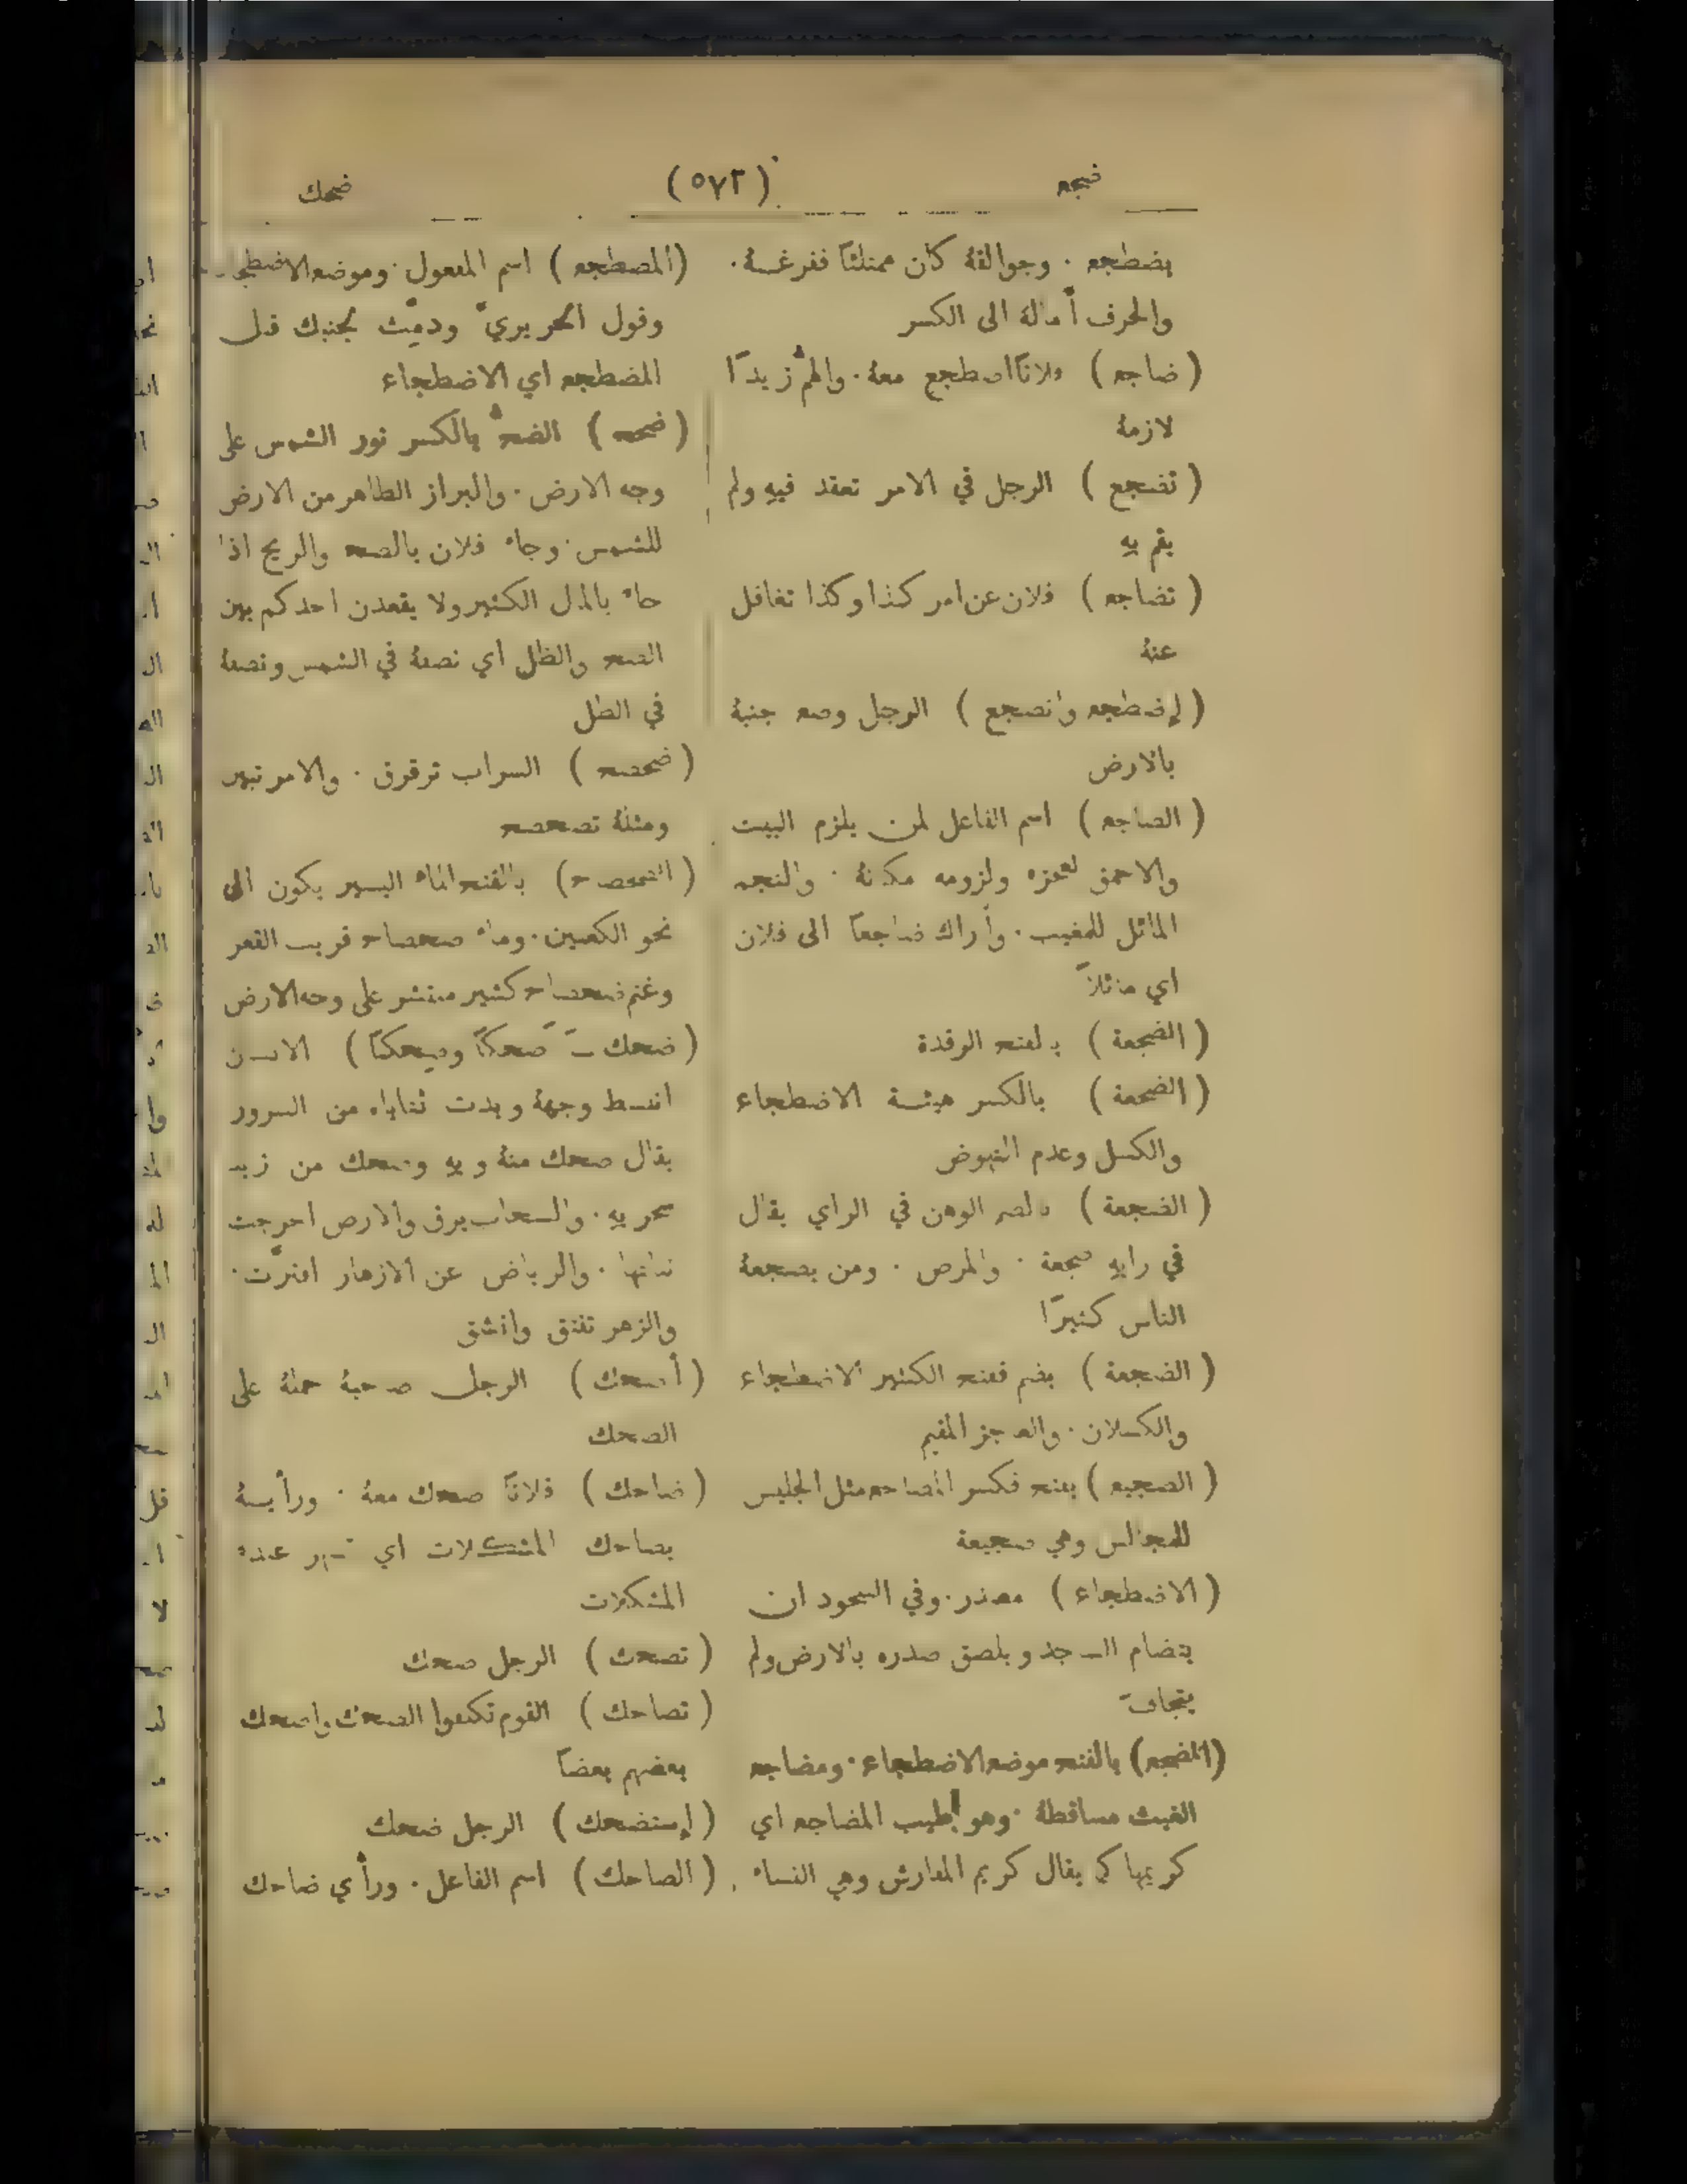 ضجع (٥٧٢) ضحك
يضطجع . وجوالقهُ كان ممتلئًا ففرغهُ .
والحرف أمالهُ الى الكسر
(ضاجع) فلانًا اضطجع معهُ . والهمُّ زيدًا
لازمهُ
(تضجع) الرجل في الامر تعقد فيهِ ولم
يقم بهِ
(تضاجع) فلان عن امر كذا وكذا تغافل
عنهُ
(إضطجع وانضجع) الرجل وضع جنبهُ
بالارض
(الضاجع) اسم الفاعل لمن يلزم البيت
والاحمق لعجزه ولزومه مكانهُ . والنجم
المائل للمغيب . وأراك ضاجعًا الى فلان
اي مائلاً
(الضجعة) بالفتح الرقدة
(الضجعة) بالكسر هيئة الاضطجاع
والكسل وعدم النهوض
(الضجعة) بالضم الوهن في الراي يقال
في رايهِ ضجعة . والمرض . ومن يضجعهُ
الناس كثيرًا
(الضجعة) بضم ففتح الكثير الاضطجاع
والكسلان . والعاجز المقيم
(الضجيع) بفتح فكسر المضاجع مثل الجليس
للمجالس وهي ضجيعة
(الاضطجاع) مصدر . وفي السجود ان
يتضام الساجد ويلصق صدره بالارض ولم
يتجافَ
(المضجع) بالفتح موضع الاضطجاع . ومضاجع
الغيث مساقطهُ . وهو طيب المضاجع اي
كريمها كما يقال كريم المفارش وهي النساء .
(المضطجع) اسم المفعول . وموضع الاضطجاع
وقول الحريريّ ودمِّث لجنبك قبل
المضطجع اي الاضطجاع
(ضح) الضحُّ بالكسر نور الشمس على
وجه الارض . والبراز الظاهر من الارض
للشمس . وجاء فلان بالضح والريح اذا
جاء بالمال الكثير ولا يقعدن احدكم بين
الضح والظل اي نصفهُ في الشمس ونصفهُ
في الظل
(ضحضح) السراب ترقرق . والامر تبين
ومثلهُ تضحضح
(الضحضاح) بالفتح الماء اليسير يكون الى
نحو الكعبين . وماء ضحضاح قريب القعر
وغنم ضحضاح كثير منتشر على وجه الارض
(ضحك ـَ ضحكًا وضِحكًا) الانسان
انبسط وجههُ وبدت ثناياه من السرور
يقال ضحك منهُ وبهِ وضحك من زيد
سخر بهِ . والسحاب برق والارض اخرجت
نباتها . والرياض عن الازهار افترَّت .
والزهر تفتق وانشق
(أضحك) الرجل صاحبهُ حملهُ على
الضحك
(ضاحك) فلانًا ضحك معهُ . ورأيهُ
يضاحك المشكلات اي تظهر عنده
المشكلات
(تضحك) الرجل ضحك
(تضاحك) القوم تكلفوا الضحك واضحك
بعضهم بعضًا
(إستضحك) الرجل ضحك
(الضاحك) اسم الفاعل . ورأي ضاحك